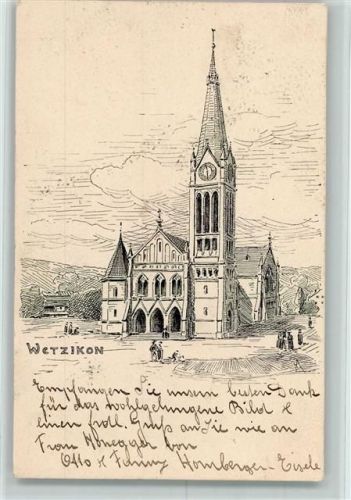 WETZIKON
Empfangen Sie unsern besten Dank
für das wohlgelungene Bild &
einen frdl. Gruß an Sie wie an
Frau Honegger von
Otto & Fanny Homberger-Eisele